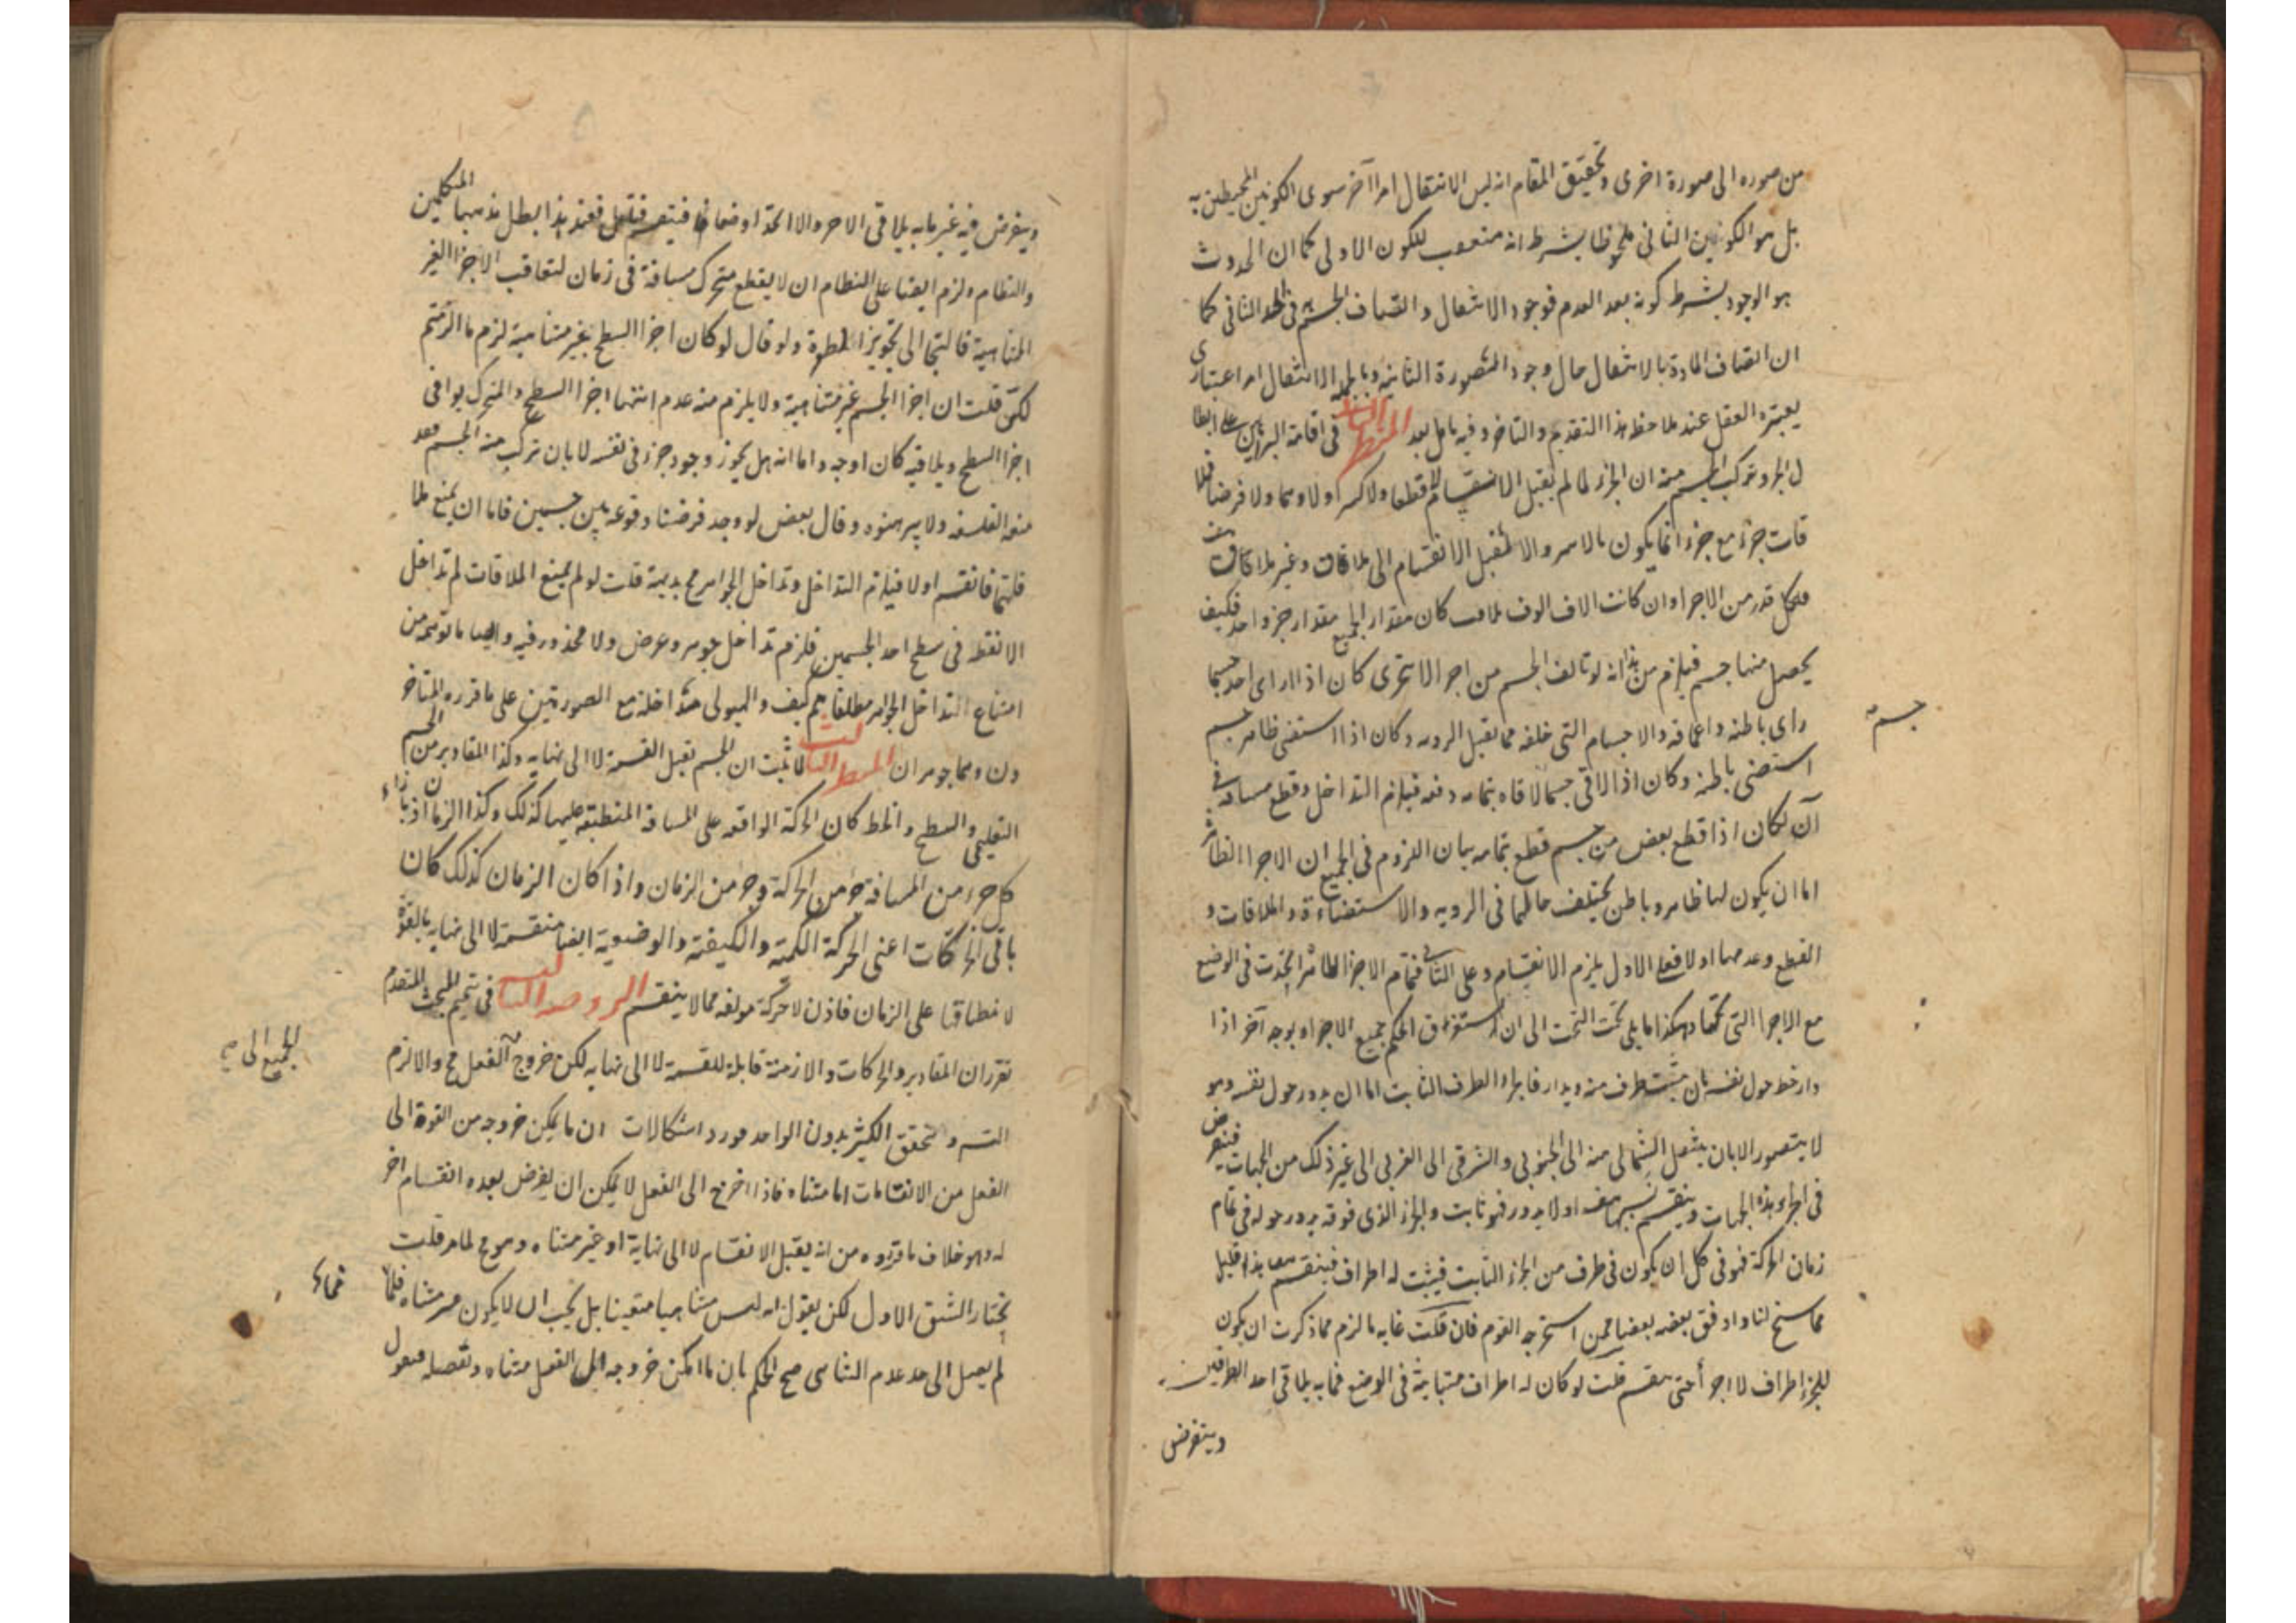 من صوره الى صورة اخرى وتحقيق المقام انه ليس الانتقال امرا آخر سوى الكونين المحيطين به
بل هو الكونين الثانى ملحوظا بشرط انه متعقب للكون الاولى كما ان الحدوث
هو الوجود بشرط كونه بعد العدم فوجود الانتقال واتصاف الجسم فى الحد الثانى كما
ان اتصاف المادة بالانتقال حال وجود الصورة الثانيه وبالجمله الانتقال امر اعتبارى
يعتبره العقل عند ملاحظه هذا التقديم والتاخر وفيه تامل بعد المنظر الثانى فى اقامة البراهين على ابطا
ل الجزء وتركب الجسم منه ان الجزء لما لم يقبل الانقسام لا قطعا ولا كسرا ولا وهما ولا فرضا فملا
قات جزء مع جزء انما يكون بالاسر والا لقبل الانقسام الى ملاقات وغير ملاقات هف
فكل قدر من الاجزا وان كانت الاف الوف كان مقدار الجميع مقدار جزء واحد فكيف
يحصل منها جسم فيلزم من هذا انه لو تالف الجسم من اجزا لا تتجزى كان اذا راى احد جسما
راى باطنه واعماقه والاجسام التى خلفه مما يقبل الرويه وكان اذا استضى ظاهر جسم
جسم
استضى باطنه وكان اذا لاقى جسما لاقاه بتمامه دفعه فيلزم التداخل وقطع مسافة فى
آن لكان اذا قطع بعض من جسم قطع بتمامه بيان اللزوم فى الجميع ان الاجزا
اما ان يكون لها ظاهر وباطن يختلف حالهما فى الرويه والاستضاءة والملاقات و
القطع وعدمها او لا فعلى الاول يلزم الانقسام وعلى الثانى فتمام الاجزا الظاهرة اتحدت فى الوضع
مع الاجزا التى تحتها وهكذا ما يلى تحت التحت الى ان استغرق الحكم جميع الاجزاء وبوجه آخر اذا
دار خط حول نفسه بان يثبت طرف منه ويدار فاجزاء الطرف الثابت اما ان يدور حول نفسه وهو
لا يتصور الا بان ينتقل الشمالى منه الى الجنوبى والشرقى الى الغربى الى غير ذلك من الجهات فيتعرض
فى الجزء هذه الجهات وينقسم بها هف او لا يدور فهو ثابت والجزء الذى فوقه يدور حوله فى تمام
زمان الحركة فهو فى كل ان يكون فى طرف من الجزء الثابت فيثبت له اطراف فينقسم هف هذا قليل
مما سنح لنا وادفق بعضه بعضا ممن استخرجه القوم فان قلت غايه ما لزم مما ذكرت ان يكون
للجزء اطراف لا اجزا حتى ينقسم قلت لو كان له اطراف متباينة فى الوضع فما به يلاقى احد الطرفين
ويتفرض
ويتفرض فيه غير ما به يلاقى الاخر والا اتحدا وضعا فينقسم فعند هذا بطل مذهبا المتكلمين
والنظام ولزم ايضا على النظام ان لا يقطع متحرك مسافة فى زمان لتعاقب الاجزا الغير
المتناهية فالتجا الى تجويز الطفرة ولو قال لو كان اجزا السطح غير متناهية لزم ما الزمتم
لكنى قلت ان اجزا الجسم غير متناهية ولا يلزم منه عدم انتها اجزا السطح والمتحرك يوافى
اجزا السطح ويلاقيه كان اوجه واما انه هل يجوز وجود جزء فى نفسه لا بان تركب منه الجسم فقد
منعه الفلسفه ولا يبرهنوه وقال بعض لو وجد فرضنا وقوعه بين جسمين فاما ان يمنع ملا
قاتهما فانقسم او لا فيلزم التداخل وتداخل الجواهر مح بديهة قلت لو لم يمنع الملاقات لم تداخل
الا نقطه فى سطح احد الجسمين فلزم تداخل جوهر وعرض ولا محذور فيه وايضا ما توهمه من
امتناع التداخل الجواهر مطلقا كيف والهيولى متداخلة مع الصورتين على ما قرره المتاخر
ون وهما جوهران المنظر الثالث لما ثبت ان الجسم يقبل القسمة لا الى نهايه وكذا المقادير من الجسم
التعليمى والسطح والخط كان الحركة الواقعه على المسافة المنطبقه عليها كذلك وكذا الزمان اذ بازاء
كل جزء من المسافة جزء من الحركة وجزء من الزمان واذا كان الزمان كذلك كان
باقى الحركات اعنى الحركة الكمية والكيفية والوضعية ايضا منقسمة لا الى نهايه بالقوة
لانطباقها على الزمان فاذن لا حركة مولفه مما لا ينقسم الروضه الثالث فى تتميم المبحث المتقدم
تقرر ان المقادير والحركات والازمنة قابلة للقسمة لا الى نهايه لكن خروج الفعل مح والا لزم
الجميع الى صح
التس وتحقق الكثير بدون الواحد مورد اشكالات ان ما يمكن خروجه من القوة الى
الفعل من الانقسامات اما متناه فاذا اخرج الى الفعل لا يمكن ان يفرض بعده انقسام اخر
له وهو خلاف ما قرروه من انه يقبل الانقسام لا الى نهاية او غير متناه وهو مح لما مر قلت
نختار الشق الاول لكن يقول انه ليس متناهيا متعينا بل يجب ان لا يكون غير متناه فلما
لم يصل الى حد عدم التناهى صح الحكم بان ما امكن خروجه الى الفعل متناه وتفصله فنقول